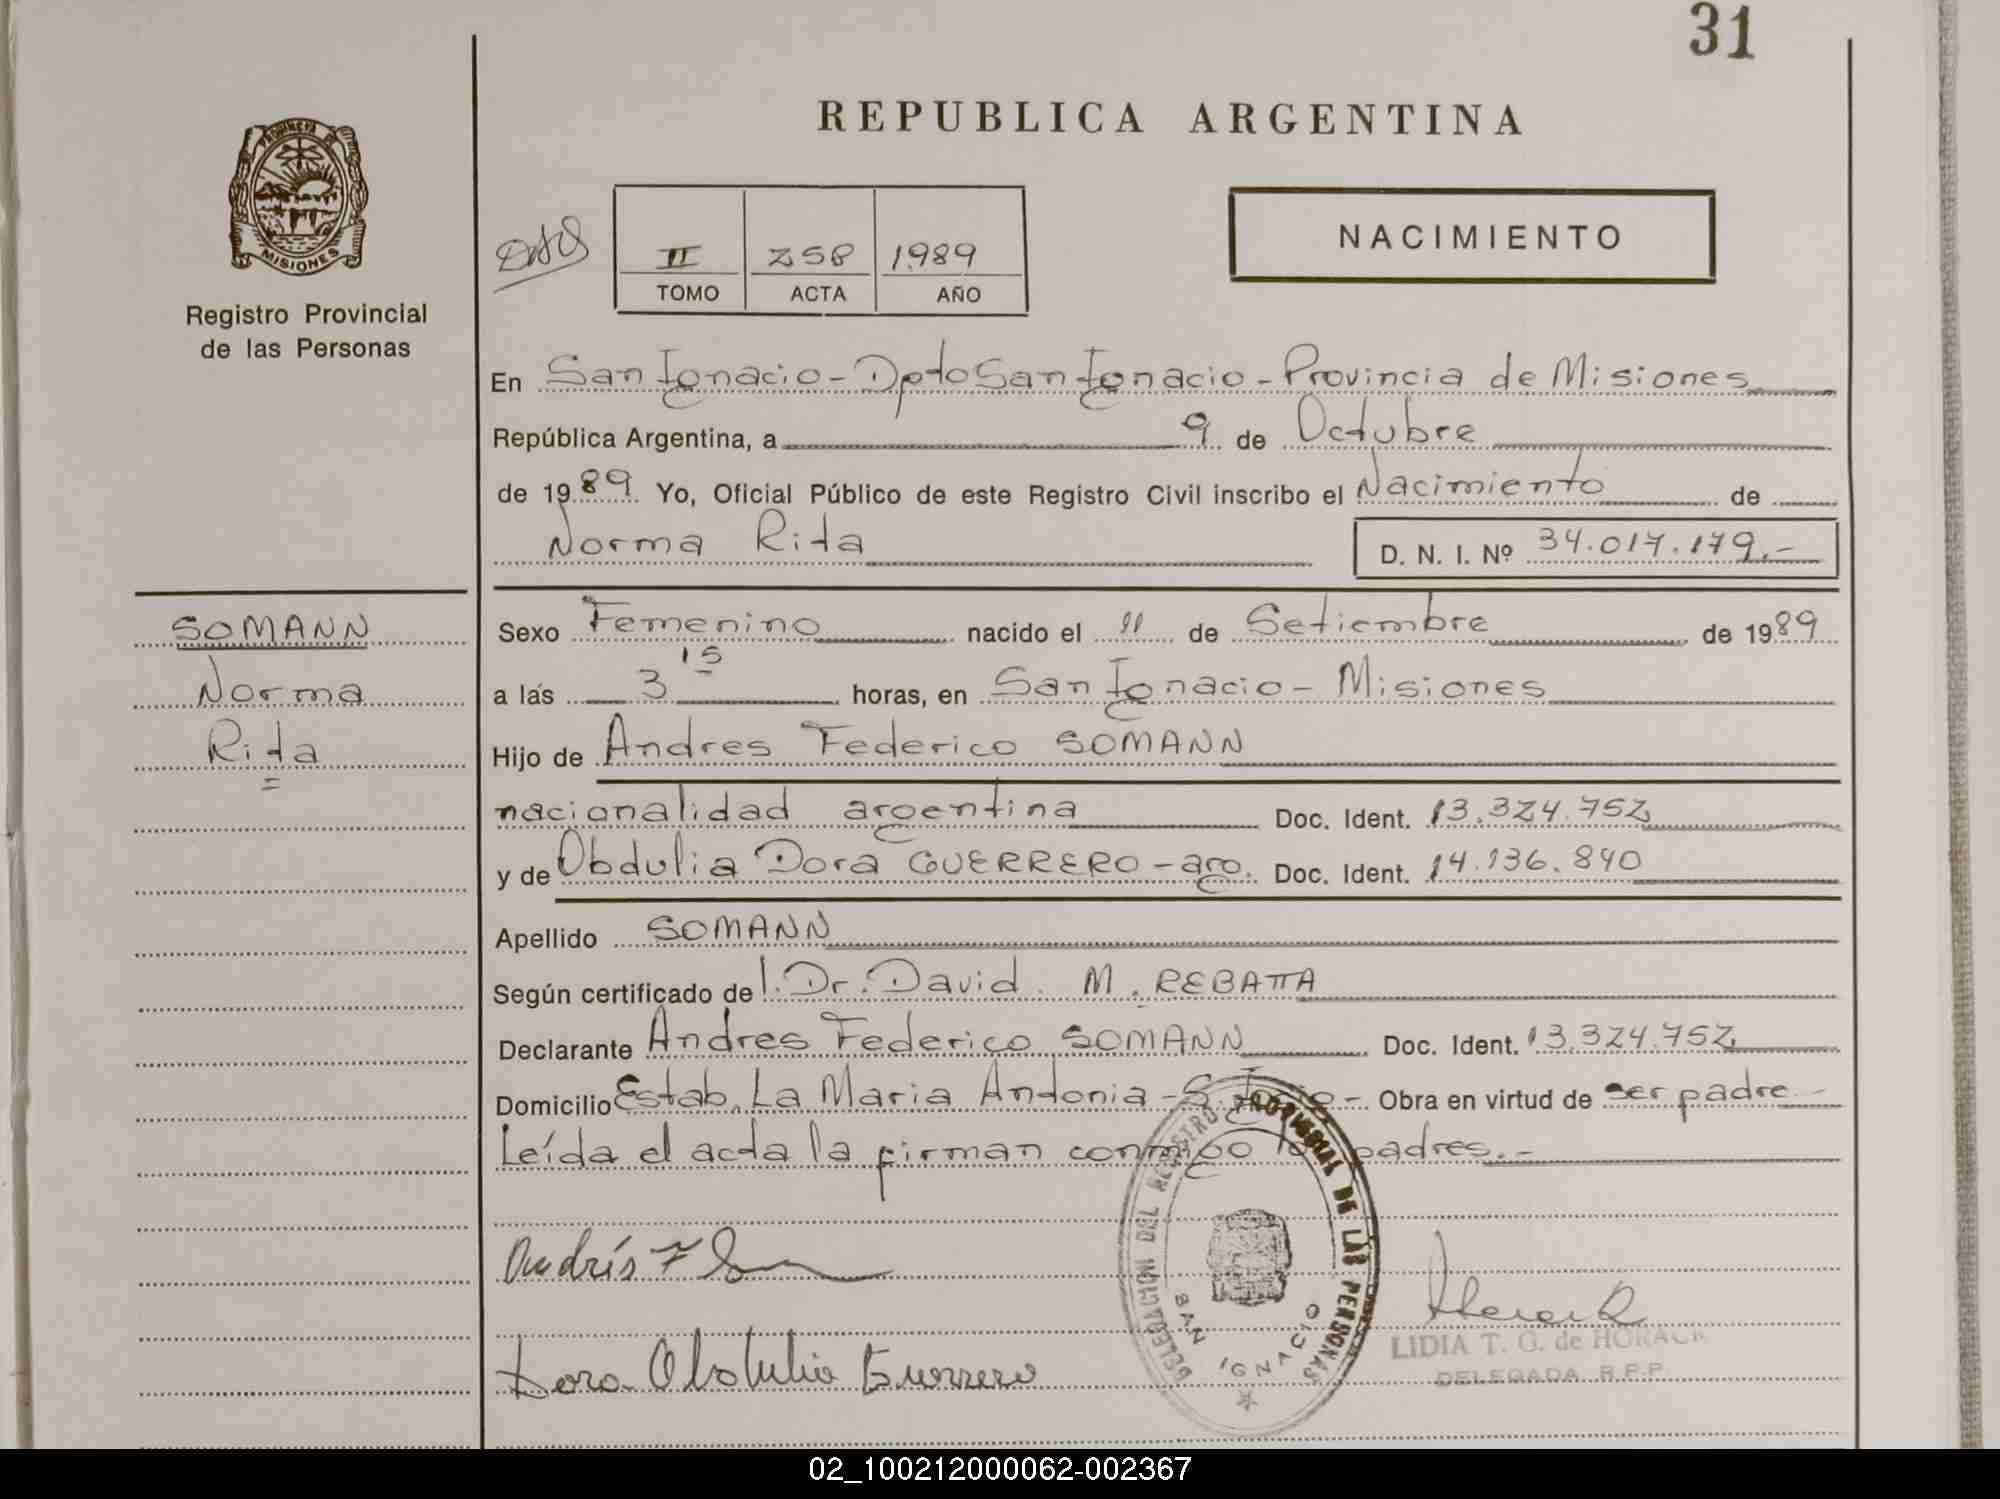 31
REPUBLICA ARGENTINA
PROVINCIA DE MISIONES
Registro Provincial
de las Personas
II 258 1989
TOMO ACTA AÑO
NACIMIENTO
En San Ignacio - Dpto San Ignacio - Provincia de Misiones
República Argentina, a 9 de Octubre
de 1989 Yo, Oficial Público de este Registro Civil inscribo el Nacimiento de
Norma Rita D. N. I. Nº 34.017.179.-
SOMANN
Norma
Rita
Sexo Femenino nacido el 11 de Setiembre de 1989
a las 3 15 horas, en San Ignacio - Misiones
Hijo de Andres Federico SOMANN
nacionalidad argentina Doc. Ident. 13.324.752
y de Obdulia Dora GUERRERO - arg. Doc. Ident. 14.136.840
Apellido SOMANN
Según certificado de l. Dr. David M. REBATTA
Declarante Andres Federico SOMANN Doc. Ident. 13.324.752
Domicilio Estab. La Maria Antonia - S. Ignio - Obra en virtud de ser padre -
Leída el acta la firman conmigo los padres. -
Andrés F
DELEGACION DEL REGISTRO PROVINCIAL DE LAS PERSONAS
SAN IGNACIO
Dora Obdulia Guerrero
LIDIA T. G. de HORACK
DELEGADA R.P.P.
02_100212000062-002367